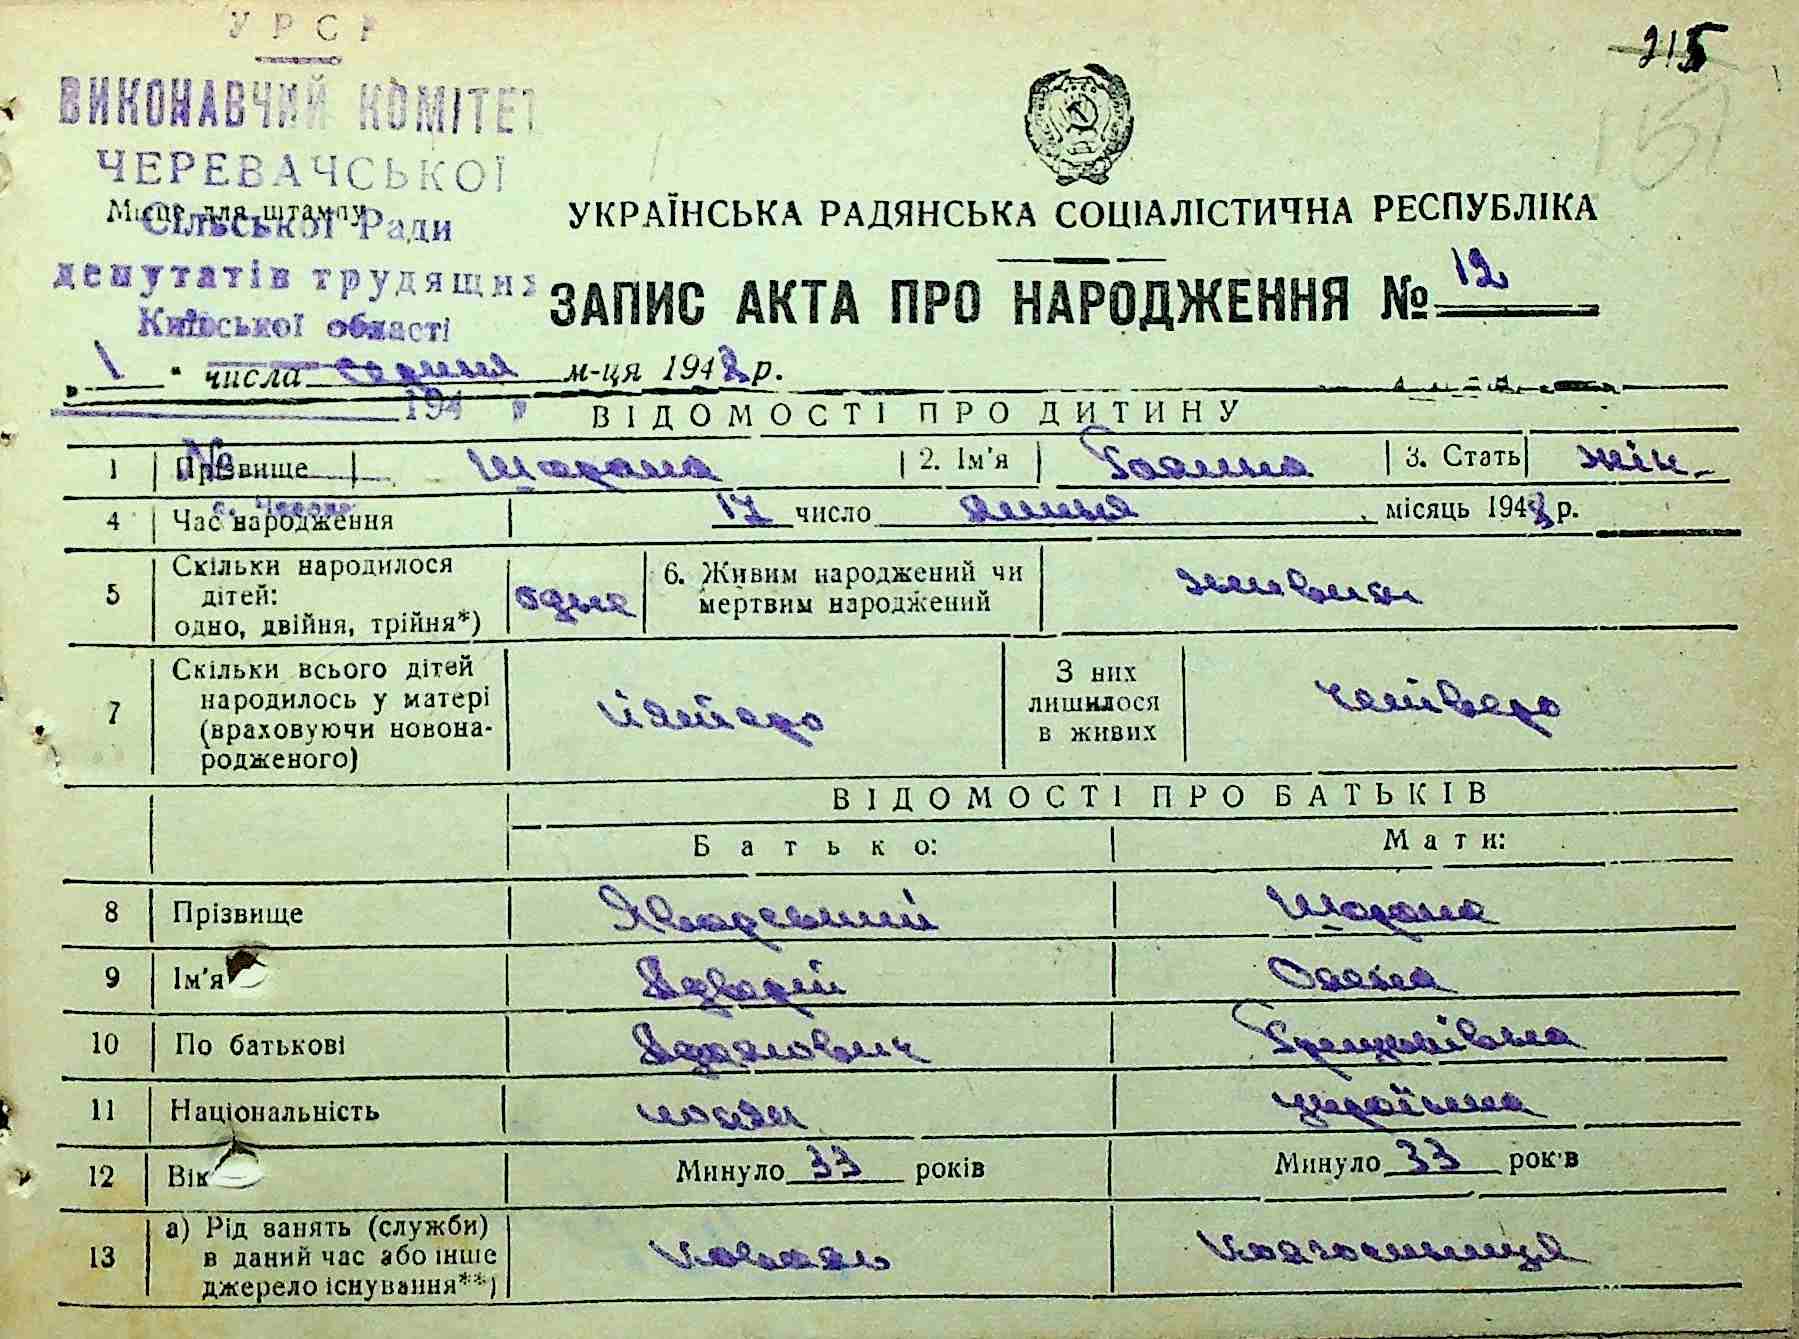 УРСР
215
ВИКОНАВЧИЙ КОМІТЕТ
ЧЕРЕВАЧСЬКОЇ
Місце для штампу
Сільської Ради
депутатів трудящих
Київської області
УКРАЇНСЬКА РАДЯНСЬКА СОЦІАЛІСТИЧНА РЕСПУБЛІКА
ЗАПИС АКТА ПРО НАРОДЖЕННЯ № 12
„ 1 “ числа серпня м-ця 1948 р.
194
ВІДОМОСТІ ПРО ДИТИНУ
1 Прізвище Шарана 2. Ім'я Галина 3. Стать жін.
№
4 Час народження 17 число липня місяць 1948 р.
5 Скільки народилося дітей: одно, двійня, трійня*) одна 6. Живим народжений чи мертвим народжений живим
7 Скільки всього дітей народилось у матері (враховуючи новонародженого) пятеро З них лишилося в живих четверо
ВІДОМОСТІ ПРО БАТЬКІВ
Батько: Мати:
8 Прізвище Яворський Шарана
9 Ім'я Ольга
10 По батькові Адамович Грицьківна
11 Національність поляк українка
12 Вік Минуло 33 років Минуло 33 років
13 а) Рід занять (служби) в даний час або інше джерело існування**) коваль колгоспниця